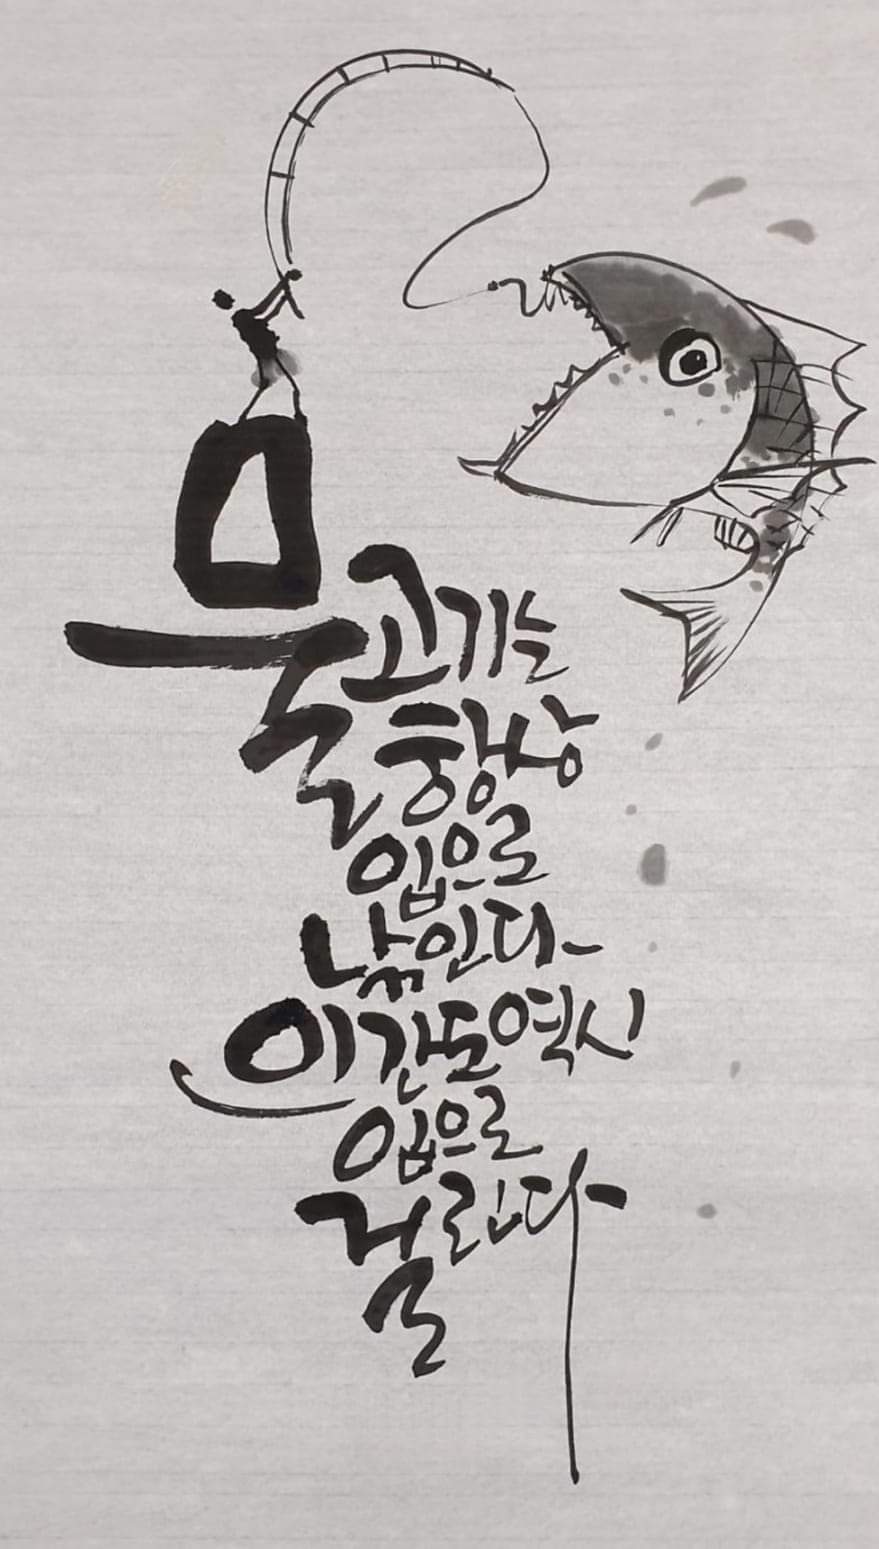 물고기는
항상
입으로
낚인다
인간도역시
입으로
걸린다